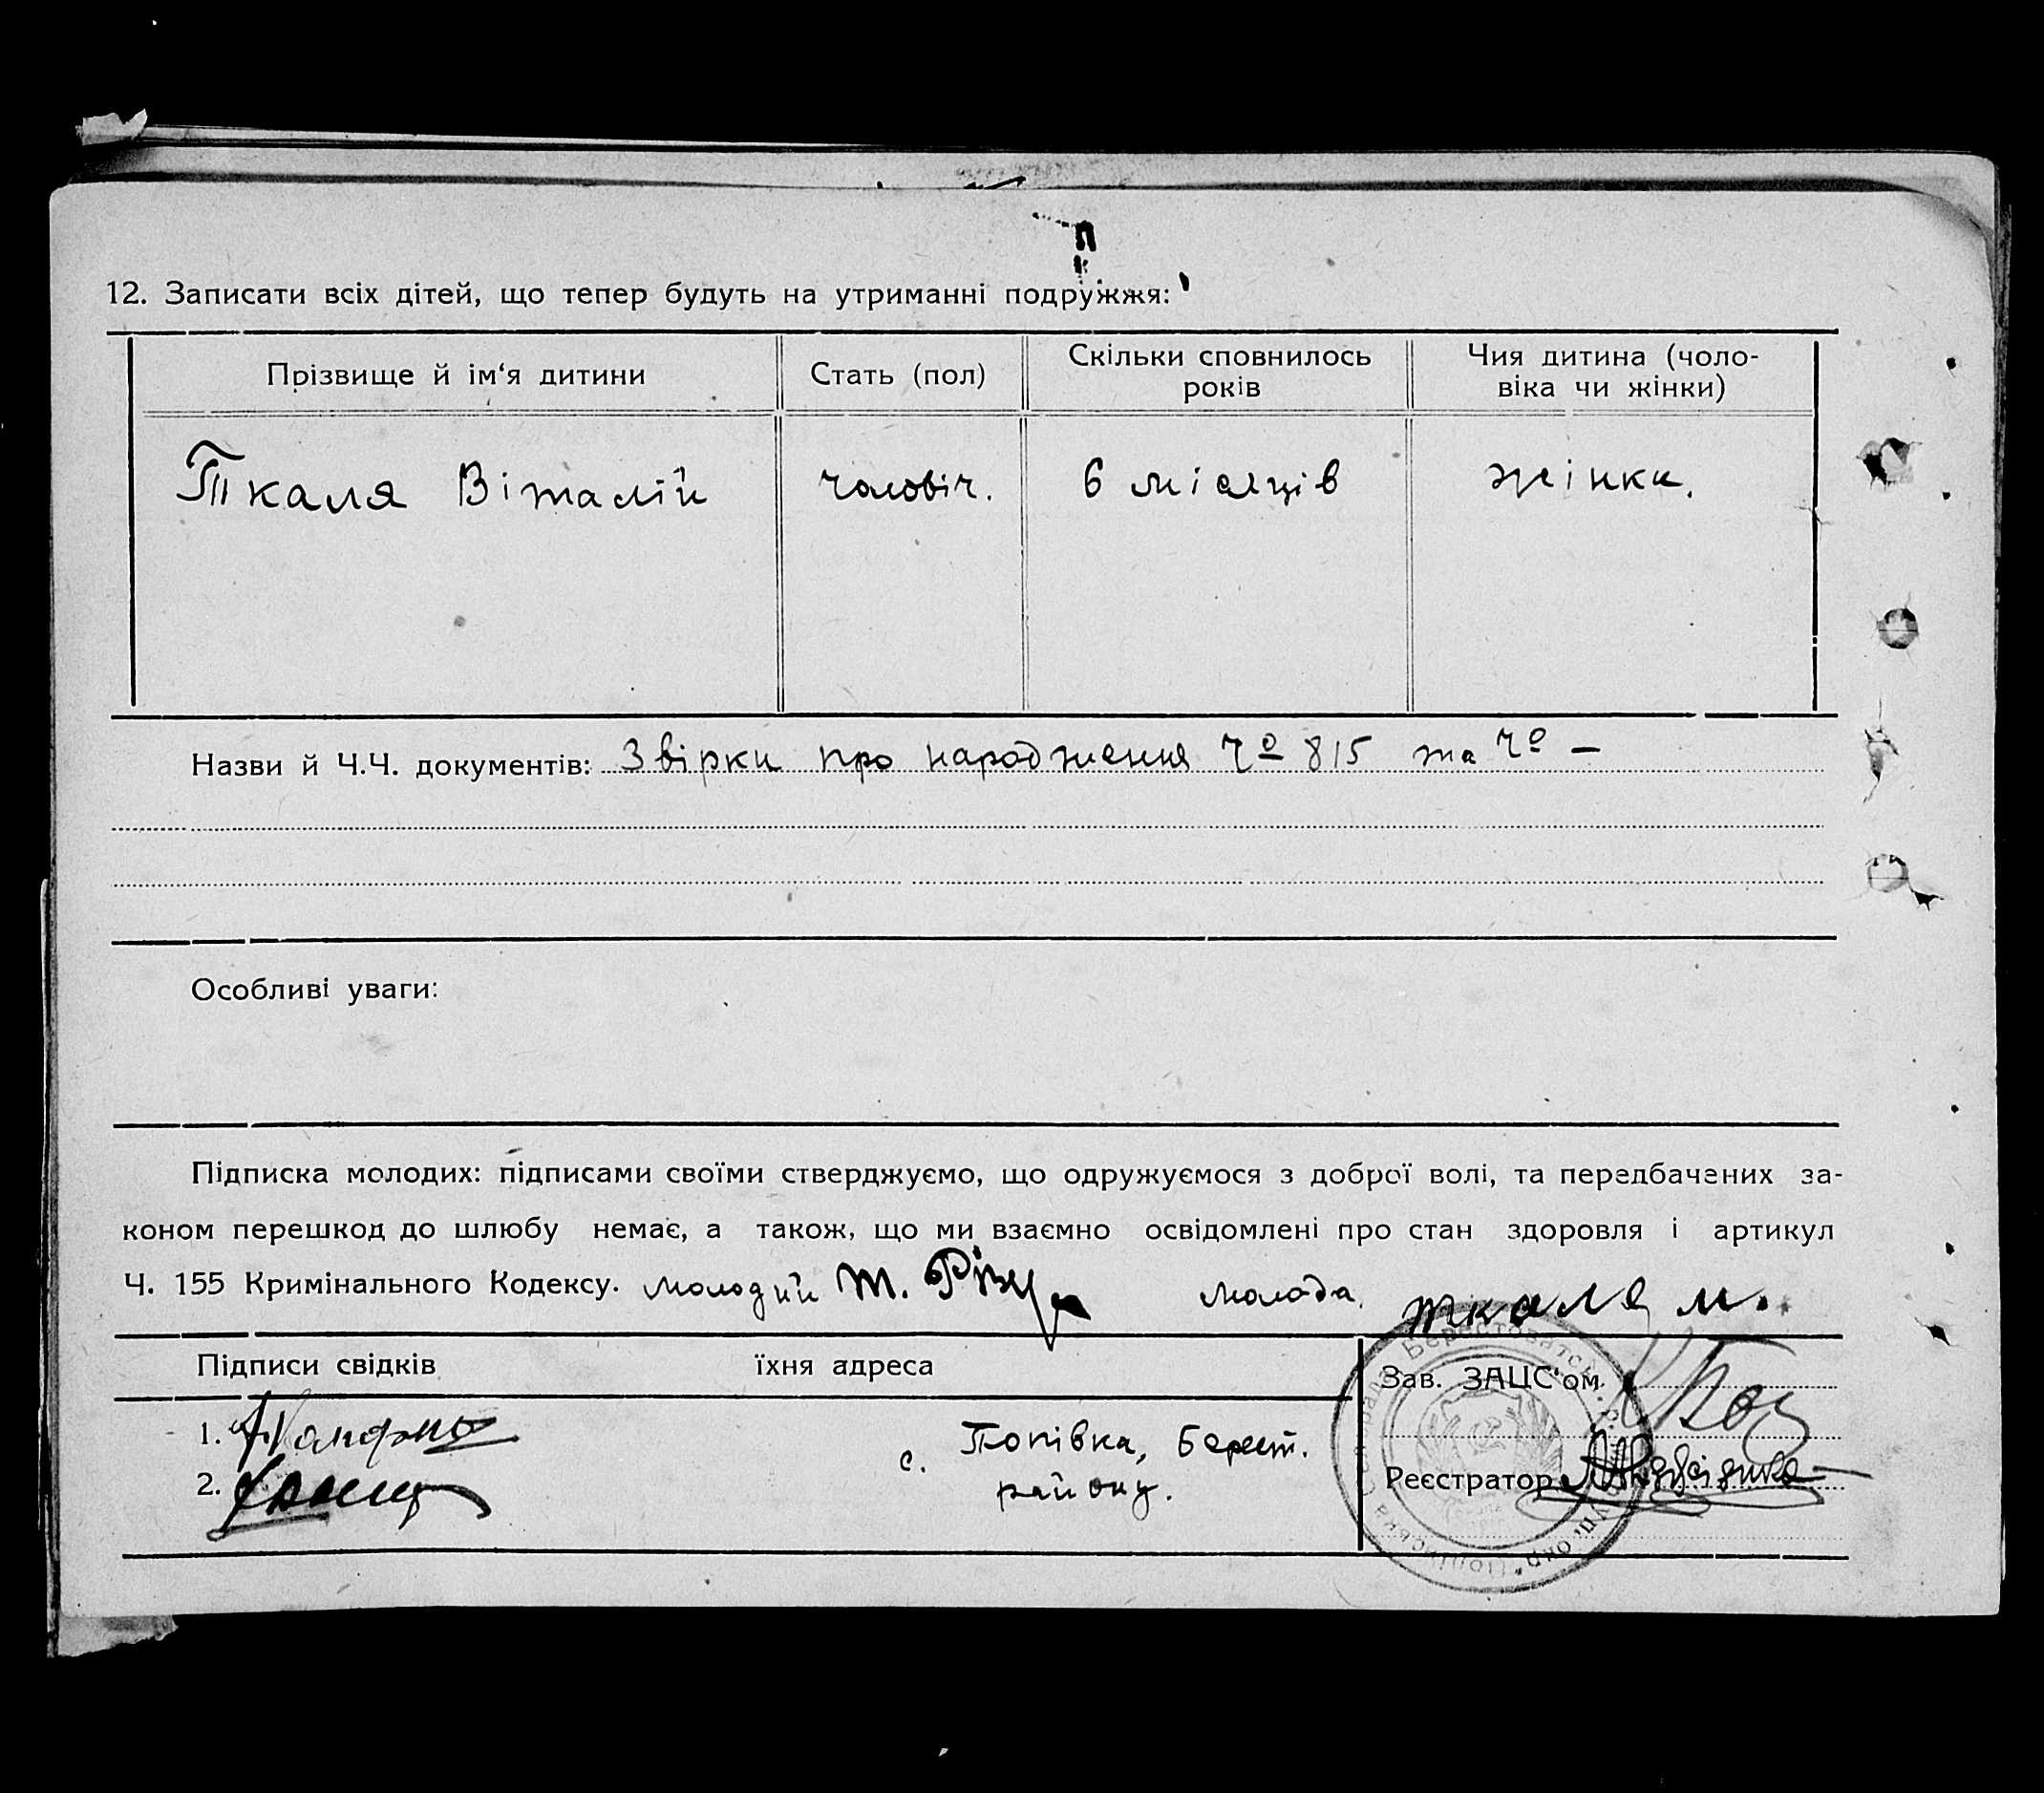 12. Записати всіх дітей, що тепер будуть на утриманні подружжя:
Прізвище й ім‘я дитини
Стать (пол)
Скільки сповнилось
років
Чия дитина (чоло-
віка чи жінки)
Ткаля Віталій
чоловіч.
6 місяців
жінки.
Назви й Ч.Ч. документів: Звірки про народження Чо 815 та Чо —
Особливі уваги:
Підписка молодих: підписами своїми стверджуємо, що одружуємося з доброї волі, та передбачених за-
коном перешкод до шлюбу немає, а також, що ми взаємно освідомлені про стан здоровля і артикул
Ч. 155 Кримінального Кодексу. Молодий Т. Молода. ткаля м.
Підписи свідків
їхня адреса
Зав. ЗАЦС‘ом
1.
с. Попівка, Берест.
2.
району.
Реєстратор